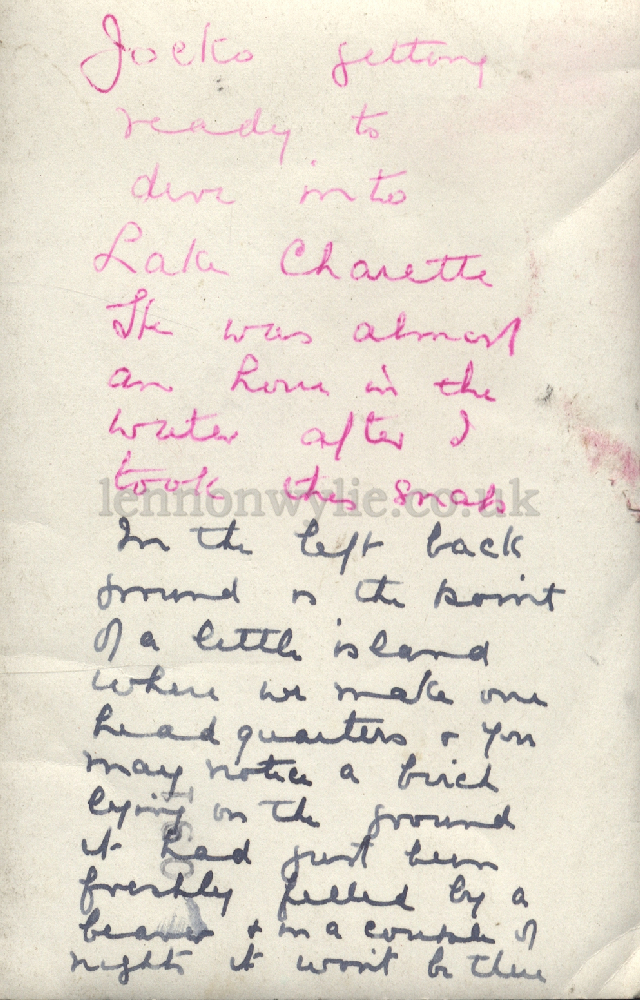 Jocko getting
ready to
dive into
Lake Charette
He was almost
an hour in the
water after I
took this snap
lennonwylie.co.uk
In the left back
ground is the point
of a little island
where we make our
headquarters & you
may notice a birch
lying on the ground
it had just been
freshly felled by a
beaver & in a couple of
nights it won't be there